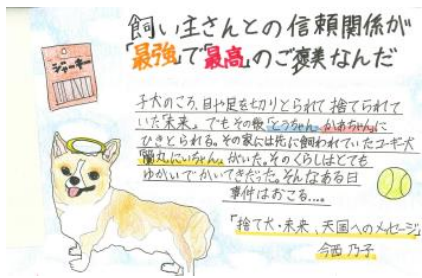 飼い主さんとの信頼関係が
「最強」で「最高」のご褒美なんだ
ジャーキー
子犬のころ、目や足を切りとられて捨てられて
いた「未来」。でもその後「とうちゃん、かあちゃん」に
ひきとられる。その家には先に飼われていたコーギー犬
「蘭丸にいちゃん」がいた。そのくらしはとても
ゆかいでかいてきだった。そんなある日
事件はおこる....。
「捨て犬・未来、天国へのメッセージ」
今西乃子